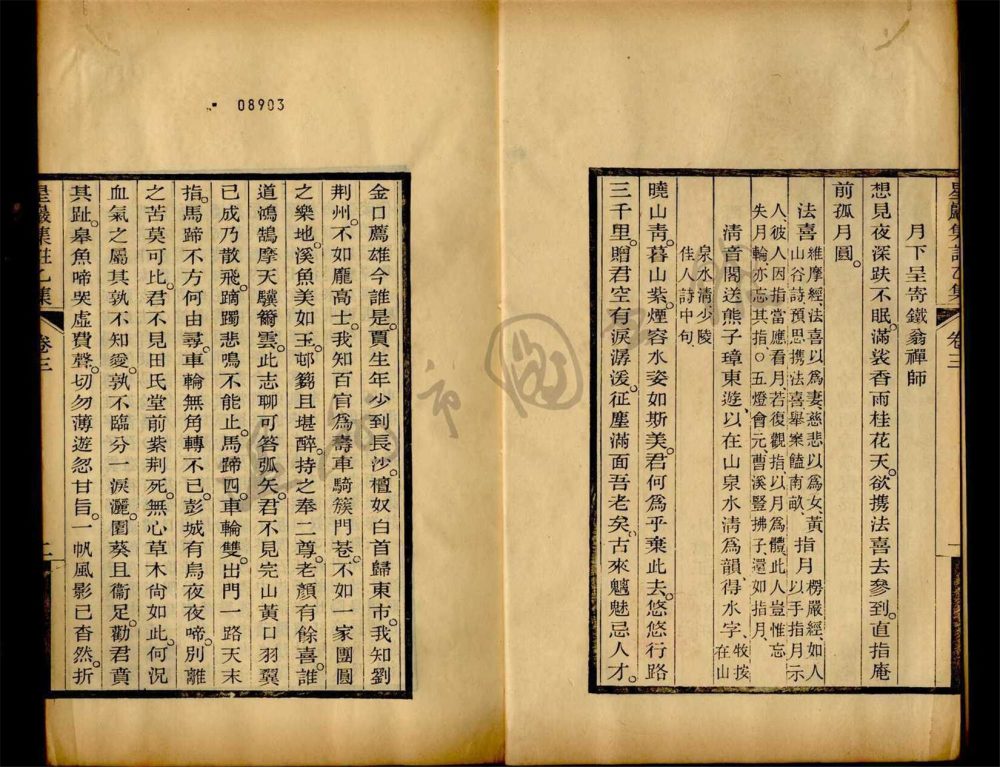 月下呈寄鐵翁禪師
想見夜深趺不眠。滿裳香雨桂花天。欲携法喜去參到。直指庵
前孤月圓。
法喜 維摩經、法喜以為妻慈悲以為女、黃
山谷詩、預思携法喜舉案饁南畝、
指月 楞嚴經、如人
以手指月示
人、彼人因指、當應看月、若復觀指、以月為體、此人豈惟忘
失月輪、亦忘其指、○五燈會元、曹溪豎拂子、還如指月、
清音閣送熊子璋東遊、以在山泉水清為韻得水字、牧按
在山
泉水清、少陵
佳人詩中句、
曉山青。暮山紫。煙容水姿如斯美。君何為乎棄此去。悠悠行路
三千里。贈君空有淚潺湲。征塵滿面吾老矣。古來魑魅忌人才。
卷三
金口薦雄今誰是。賈生年少到長沙。檀奴白首歸東市。我知劉
荊州。不如龐高士。我知百官為壽車騎簇門巷。不如一家團圓
之樂地。溪魚美如玉。邨篘且堪醉。持之奉二尊。老顏有餘喜。誰
道鴻鵠摩天驤爾雲。此志聊可答弧矢。君不見完山黃口羽翼
已成乃散飛。蹢躅悲鳴不能止。馬蹄四。車輪雙。出門一路天末
指。馬蹄不方何由尋。車輪無角轉不已。彭城有烏夜夜啼。別離
之苦莫可比。君不見田氏堂前紫荊死。無心草木尚如此。何況
血氣之屬其孰不知愛。孰不臨分一淚灑。園葵且衞足。勸君賁
其趾。皋魚啼哭虛費聲。切勿薄遊忽甘旨。一帆風影已杳然。折
星巖集註乙集 卷三 二
08903